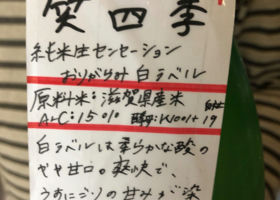 笑四季
純米生センセーション
おりがらみ 白ラベル
原料米:滋賀県産米
ALC:15% 酵母:K1001+19
白ラベルは柔らかな酸の
やや甘口。爽快で、
うすにごりの甘みが染